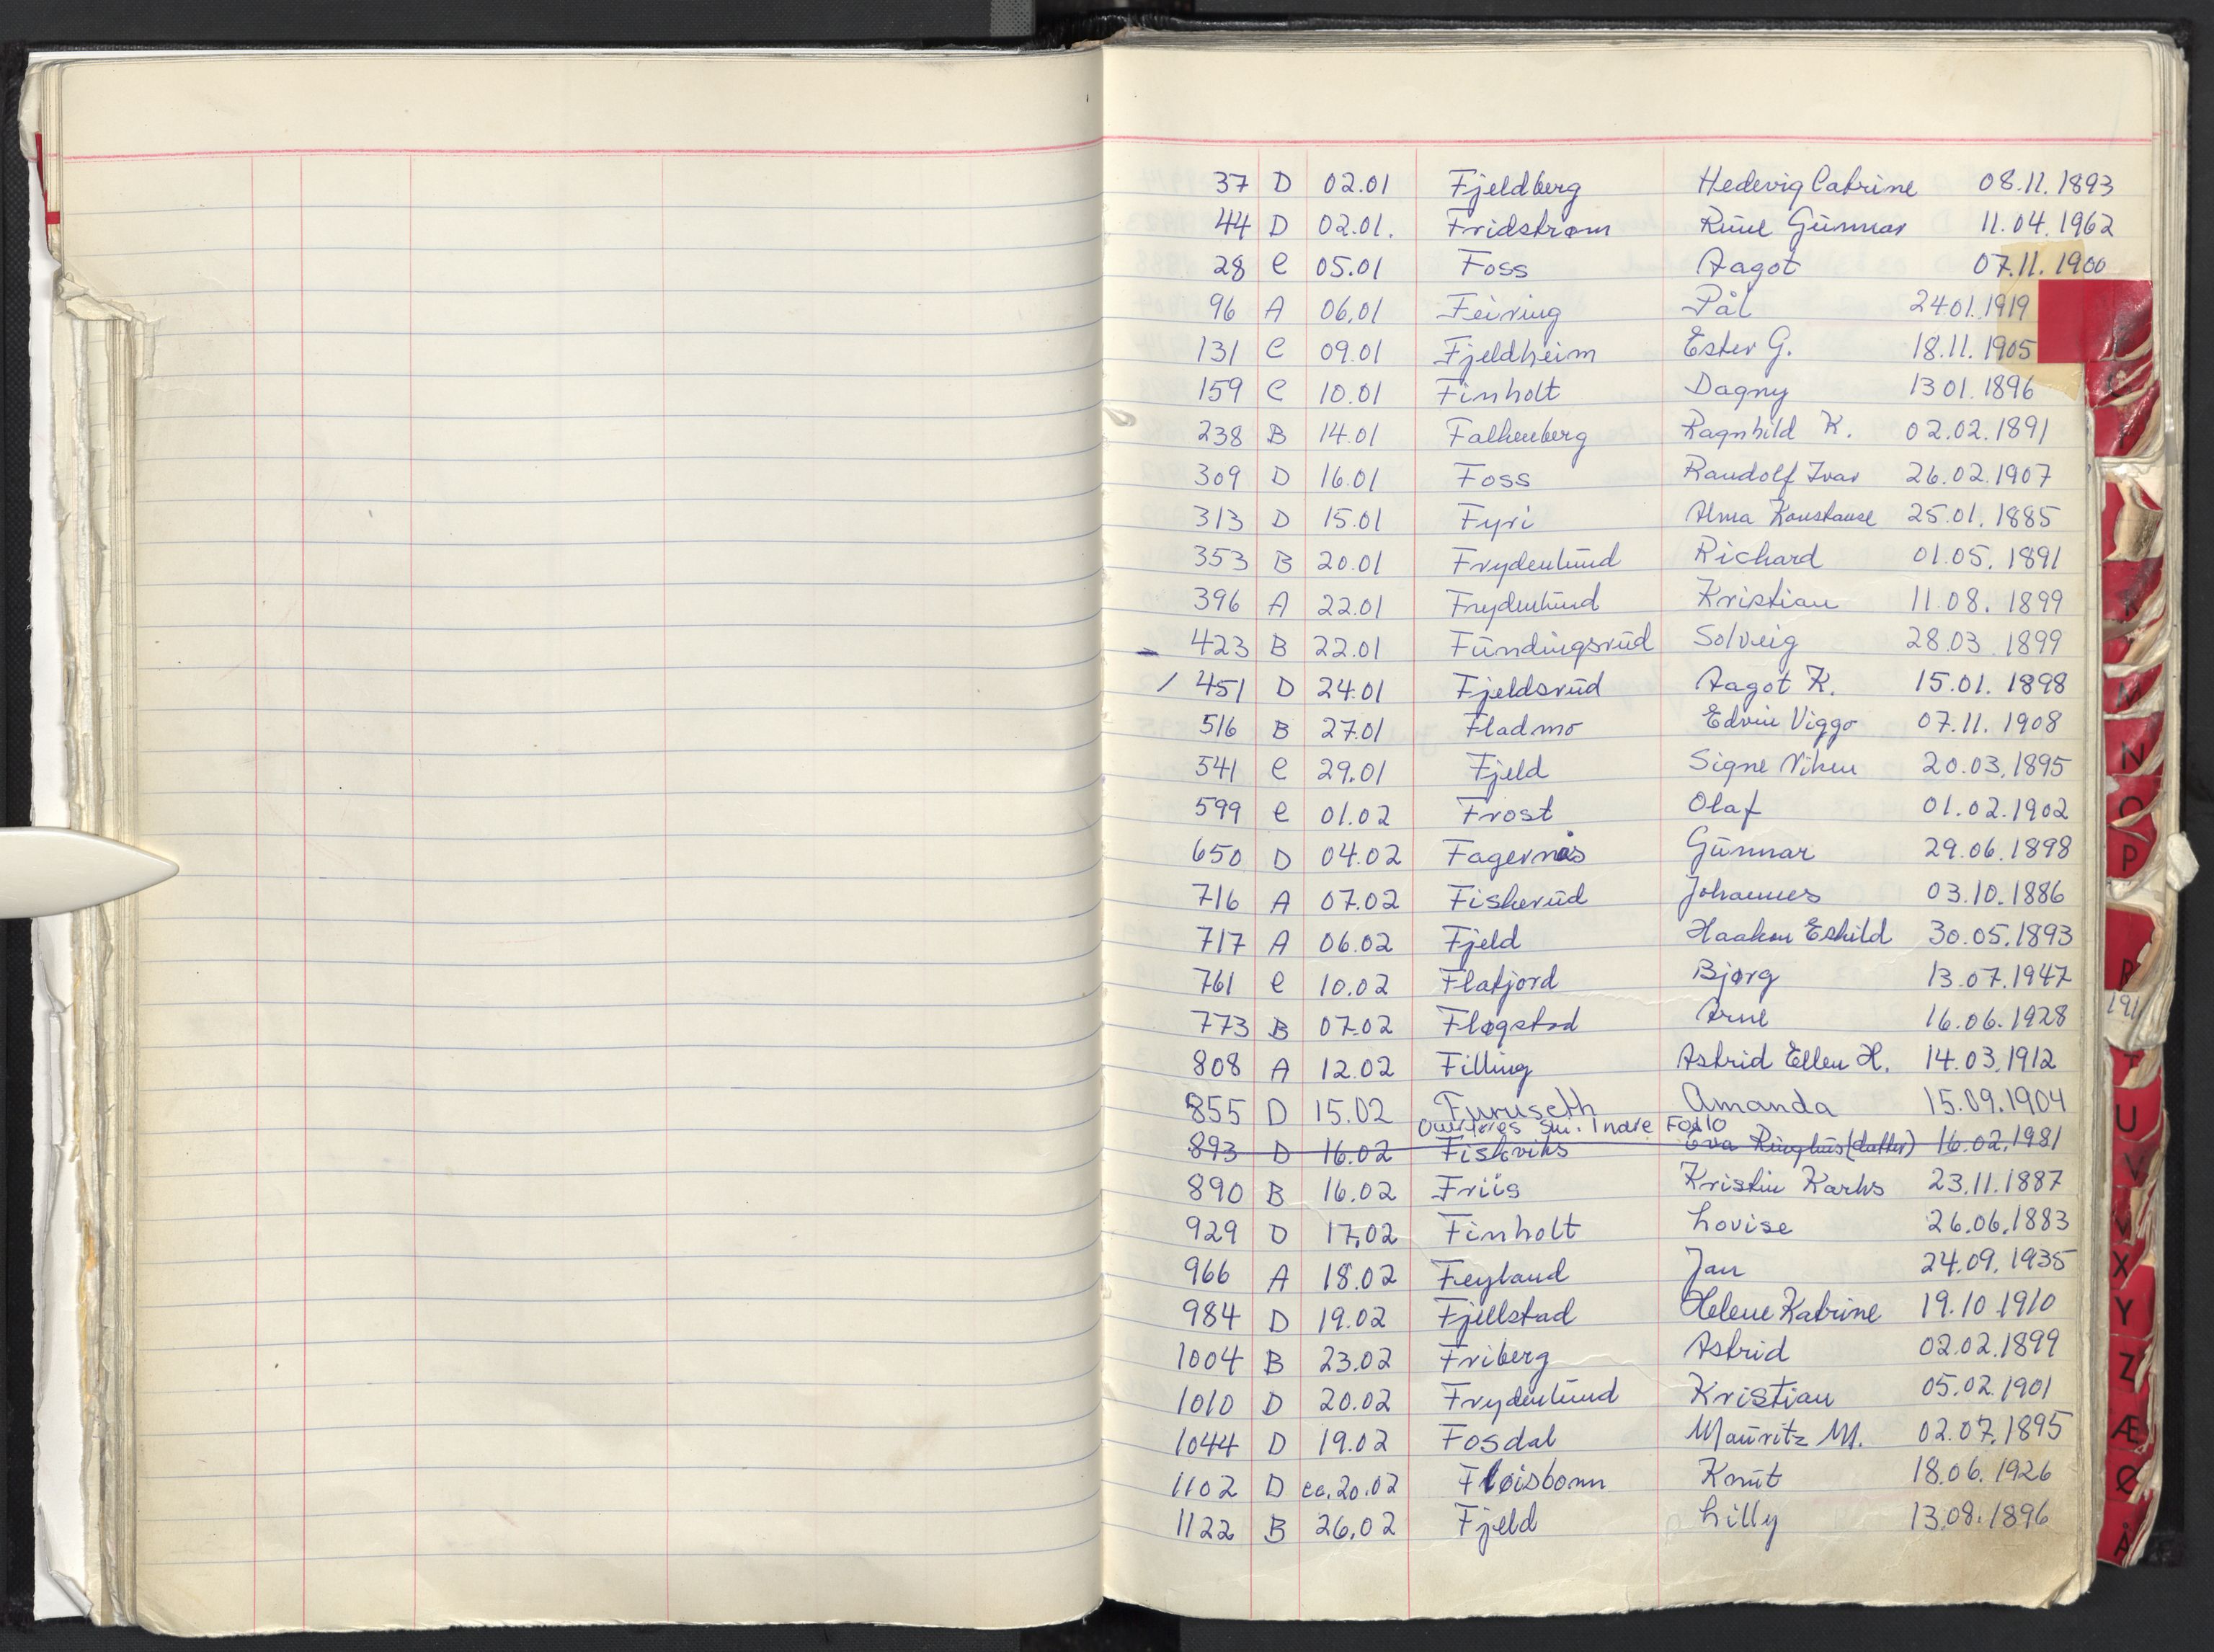 37 D 02.01 Fjeldberg Hedevig Catrine 08.11.1893
44 D 02.01. Fridstrøm Rune Gunnar 11.04.1962
28 C 05.01 Foss Aagot 07.11.1900
96 A 06.01 Feiring Pål 24.01.1919
131 C 09.01 Fjeldheim Ester G. 18.11.1905
159 C 10.01 Finholt Dagny 13.01.1896
238 B 14.01 Falkenberg Ragnhild K. 02.02.1891
309 D 16.01 Foss Randolf Ivar 26.02.1907
313 D 15.01 Fyri Alma Konstanse 25.01.1885
353 B 20.01 Frydenlund Richard 01.05.1891
396 A 22.01 Frydenlund Kristian 11.08.1899
423 B 22.01 Fundingsrud Solveig 28.03.1899
/ 451 D 24.01 Fjeldsrud Aagot K. 15.01.1898
516 B 27.01 Fladmo Edvin Viggo 07.11.1908
541 C 29.01 Fjeld Signe Viken 20.03.1895
599 C 01.02 Frost Olaf 01.02.1902
650 D 04.02 Fagernås Gunnar 29.06.1898
716 A 07.02 Fiskerud Johannes 03.10.1886
717 A 06.02 Fjeld Haakon Eskild 30.05.1893
761 C 10.02 Flatjord Bjørg 13.07.1947
773 B 07.02 Fløgstad Arne 16.06.1928
808 A 12.02 Filling Astrid Ellen H. 14.03.1912
855 D 15.02 Furuseth Amanda 15.09.1904
Indre
893 D 16.02 Fiskviks Eva Ringhus (datter) 16.02.1981
890 B 16.02 Friis Kristin Karks 23.11.1887
929 D 17.02 Finholt Lovise 26.06.1883
966 A 18.02 Feyland Jan 24.09.1935
984 D 19.02 Fjellstad Helene Katrine 19.10.1910
1004 B 23.02 Friberg Astrid 02.02.1899
1010 D 20.02 Frydenlund Kristian 05.02.1901
1044 D 19.02 Fosdal Mauritz M. 02.07.1895
1102 D ca.20.02 Fløisbonn Knut 18.06.1926
1122 B 26.02 Fjeld Lilly 13.08.1896
N
O
P
R
191
U
V
X
Y
Z
Æ
Ø
Å